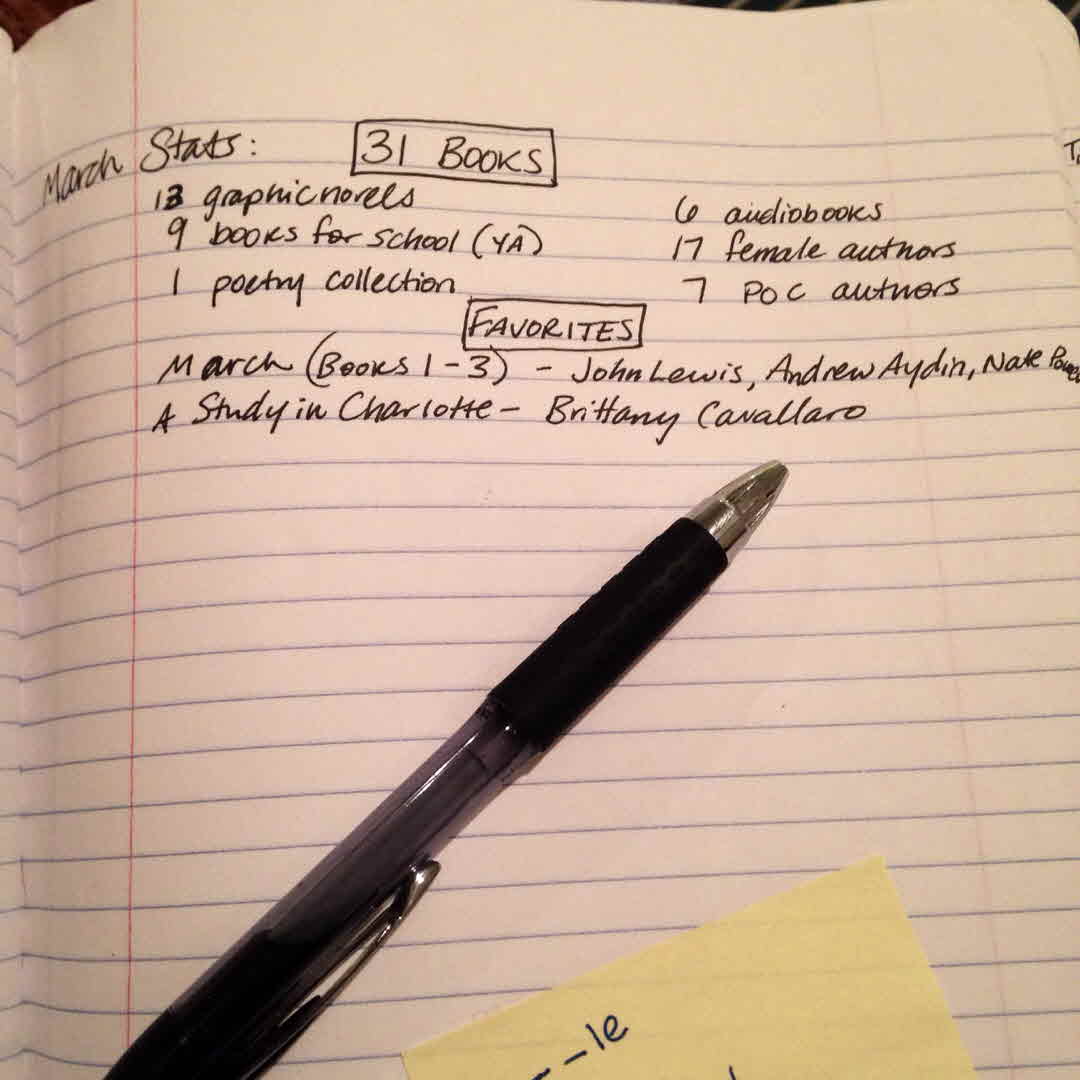 March Stats: 31 BOOKS
13 graphic novels
9 books for school (YA)
1 poetry collection
6 audiobooks
17 female authors
7 POC authors
FAVORITES
March (Books 1-3) - John Lewis, Andrew Aydin, Nate
A Study in Charlotte - Brittany Cavallaro
--le